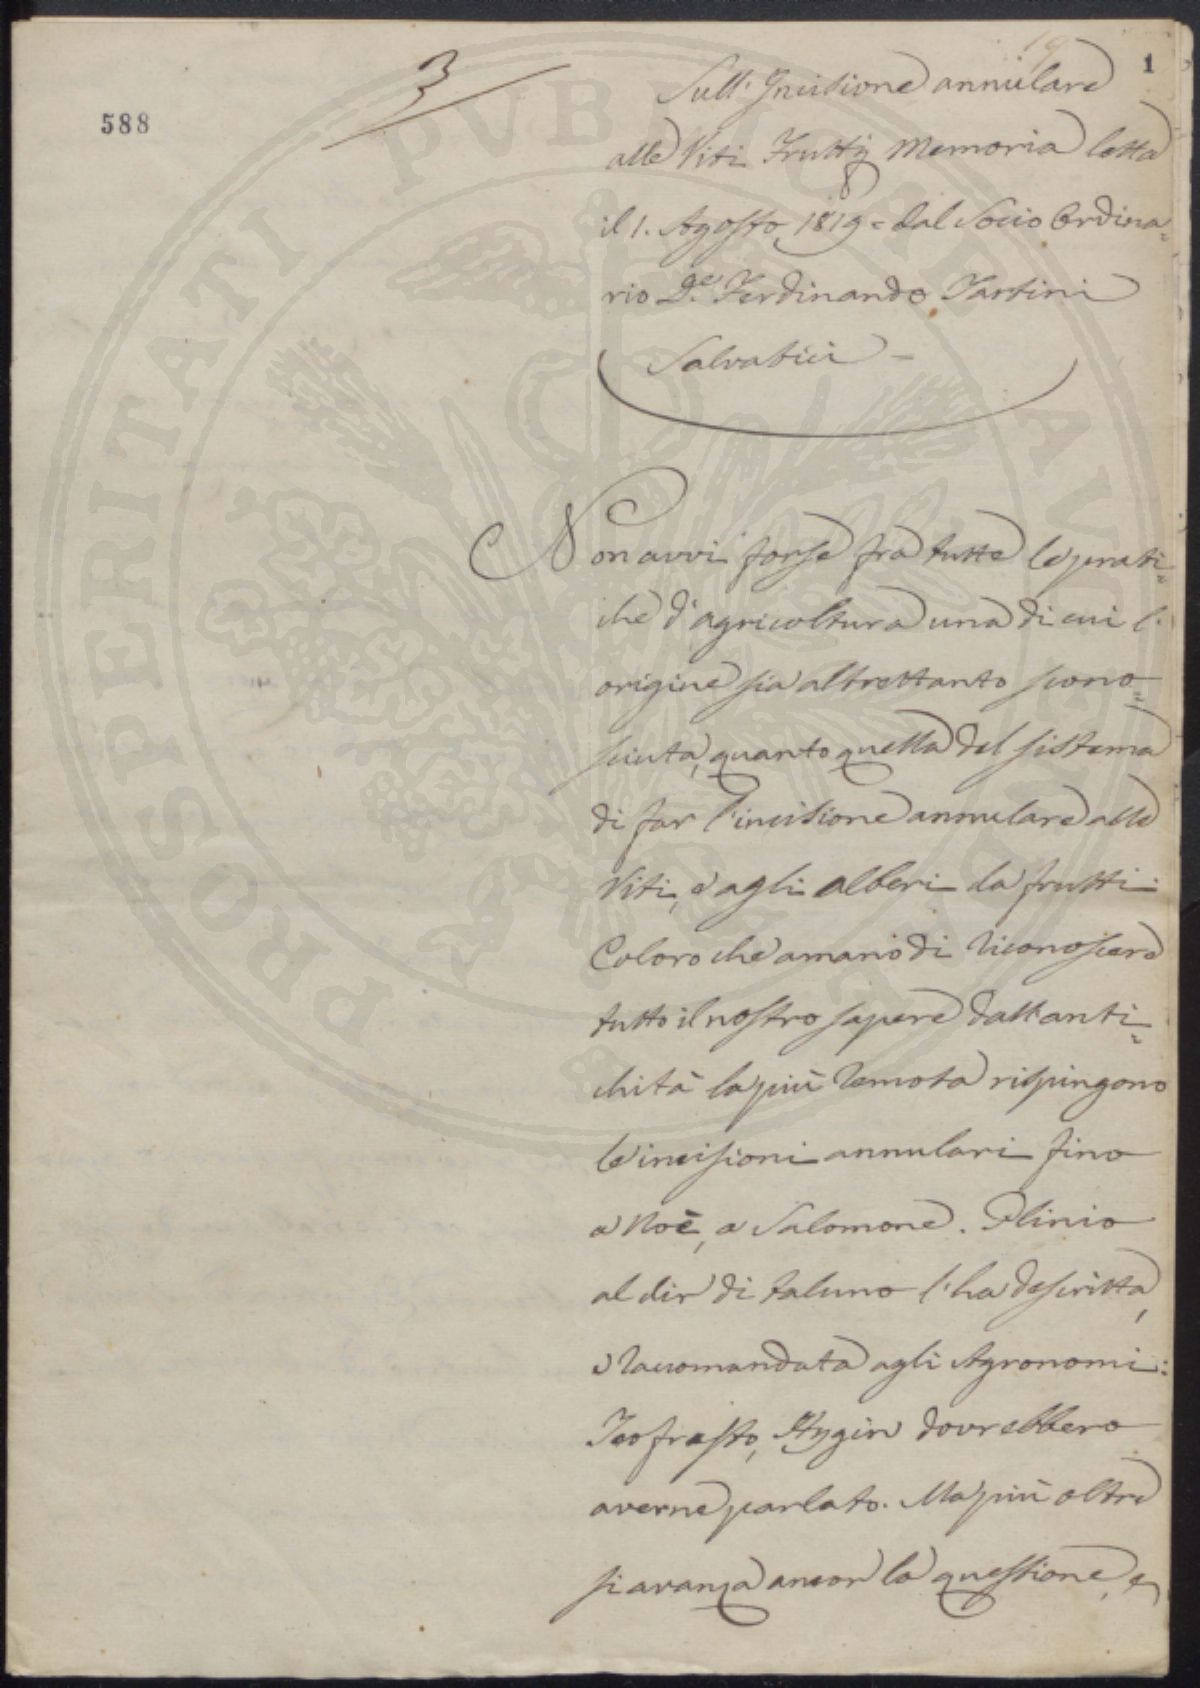 1
588
3
Sull' Incisione annulare
alle Viti Fruttij Memoria letta
il 1. Agosto 1819 = dal Socio Ordina=
rio De. Ferdinando Tartini
Salvatici -
Non avvi forse fra tutte le prati=
che d'agricoltura una di cui l'
origine sia altrettanto scono=
sciuta, quanto quella del sistema
di far l'incisione annulare alle
Viti, e agli alberi da frutti.
Coloro che amano di riconoscere
tutto il nostro sapere dall'anti=
chità la più remota rispingono
le incisioni annulari fino
a Noè, a Salomone. Plinio
al dir di taluno l'ha descritta,
e raccomandata agli Agronomi:
Teofrasto, Hygin dovrebbero
averne parlato. Ma più oltre
si avanza ancor la questione, e
PROSPERITATI PUBLICAE AUGENDAE